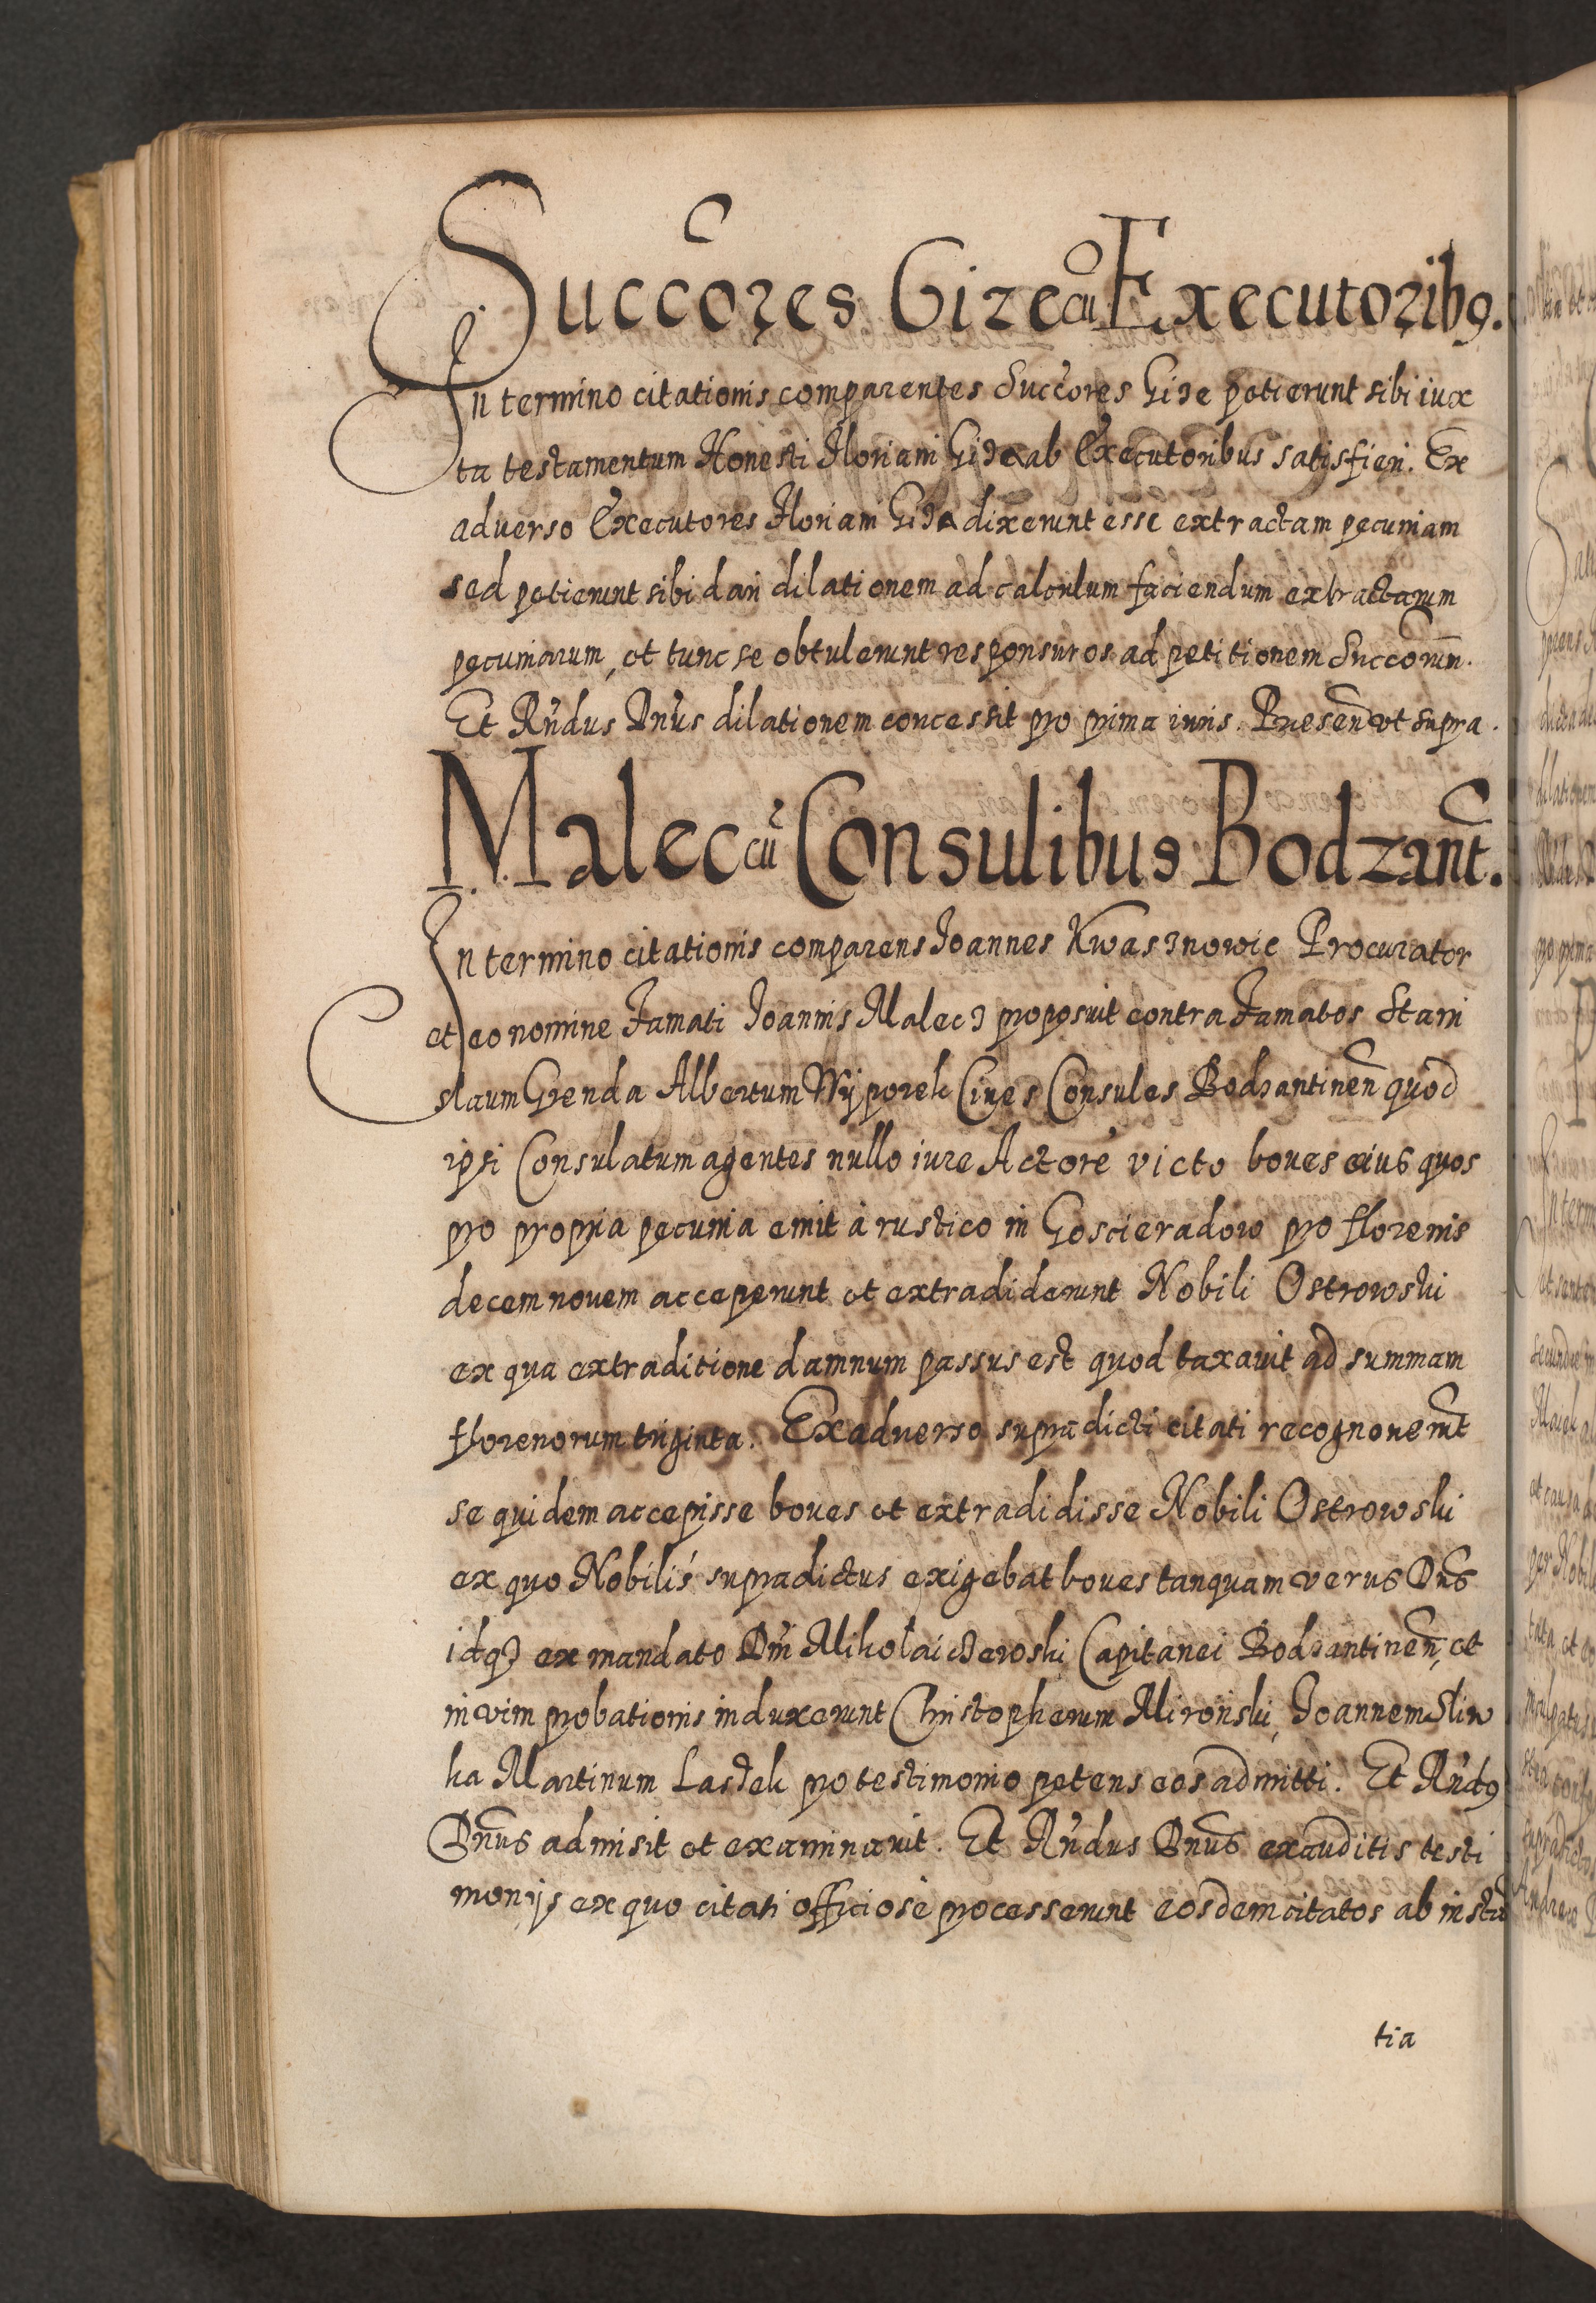 Succores Gize cu Executoribꝯ.
In termino citationis comparentes Succores Gize petierunt sibi iux
ta testamentum Honesti Floriani Giże ab Executoribus satisfieri. Ex
adverso Executores Florian Giża dixerunt esse extractam pecuniam
sed petierunt sibi dari dilationem ad calculum faciendum extractarum
pecuniarum, et tunc se obtulerunt responsuros ad petitionem Succorum.
Et Rndus Dnus dilationem concessit pro prima iuris. Praesen̄ ut supra.
Malec cū Consulibus Bodzant̄.
In termino citationis comparens Joannes Kwasznowic Procurator
et eo nomine Famati Joannis Malecz proposuit contra Famatos Stani
slaum Genda Albertum Wyporek Cives Consules Bodzantinen̄ quod
ipsi Consulatum agentes nullo iure Actore victo boues eius quos
pro propria pecunia emit à rustico in Goscieradow pro florenis
decem novem acceperunt et extradiderunt Nobili Ostrowski
ex qua extraditione damnum passus est quod taxavit ad summam
florenorum triginta. Ex adverso supradicti citati recognoverūt
se quidem accepisse boues et extradidisse Nobili Ostrowski
ex quo Nobilis supradictus exigebat boues tanquam verus Dn̄s
idqꝫ ex mandato Dni Mikołai Capitanei Bodzantinen̄, et
in vim probationis induxerunt Christopherum Mironski, Joannem Sliw
ka Martinum Laszek pro testimonio petens eos admitti. Et Rndꝯ
Dnus admisit et examinavit. Et Rndus Dnus exauditis testi
monijs ex quo citati officiosè processerunt eosdem citatos ab instā
tia